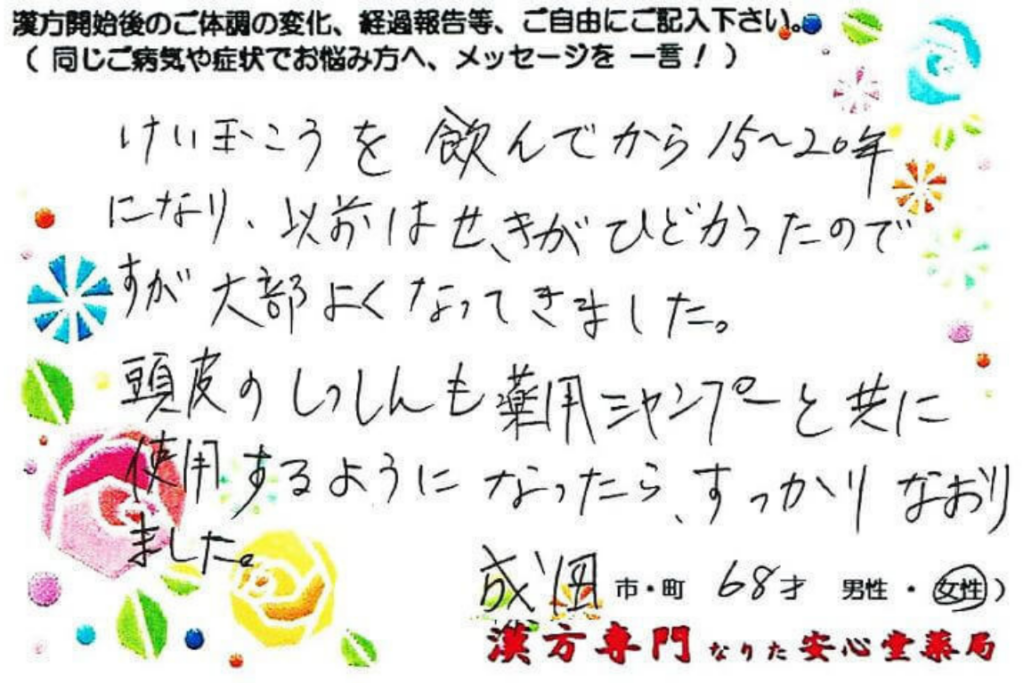 漢方開始後のご体調の変化、経過報告等、ご自由にご記入下さい。
(同じご病気や症状でお悩み方へ、メッセージを 一言!)
けい玉こうを 飲んでから15~20年
になり、以前はせきがひどかったので
すが 大部よくなってきました。
頭皮のしっしんも薬用シャンプーと共に
使用するようになったら、すっかりなおり
ました。
成田 市・町 68才 男性・女性)
漢方専門 なりた 安心堂薬局